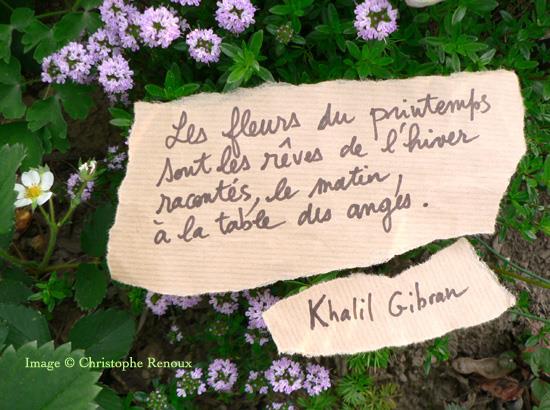 Les fleurs du printemps
sont les rêves de l'hiver
racontés, le matin,
à la table des anges.
Khalil Gibran
Image © Christophe Renoux